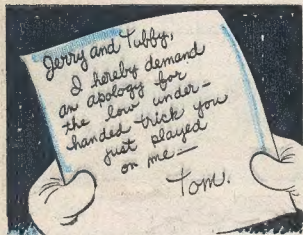 Jerry and Tubby,
I hereby demand
an apology for
the low under-
handed trick you
just played
on me—
Tom.